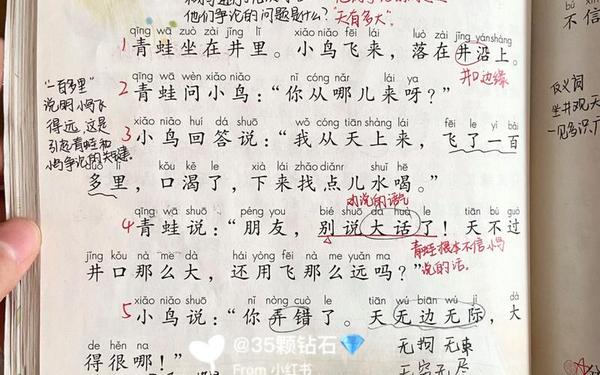 他们争论的问题是什么？"天有多大"。
不信
qīng wā zuò zài jǐng lǐ
luò zài jǐng yán shàng
青蛙坐在井里。小鸟飞来，落在井沿上。
井口边缘
qīng wā wèn xiǎo niǎo nǐ cóng nǎr lái ya
2 青蛙问小鸟："你从哪儿来呀？"
"一百多里"
说明小鸟飞
得远，这是
引起青蛙和
小鸟争论的关键。
反义词
坐井观天
一见多识广
xiǎo niǎo huí dá shuō wǒ cóng tiān shàng lái fēi le yì bǎi
3 小鸟回答说："我从天上来，飞了一百
duō lǐ kǒu kě le xià lái zhǎo diǎnr shuǐ hē
多里，口渴了，下来找点儿水喝。"
qīng wā shuō péng you bié shuō dà huà le tiān bú guò
4 青蛙说："朋友，别说大话了！天不过
青蛙根本不信小鸟
说的话。
jǐng kǒu nà me dà hái yòng fēi nà me yuǎn ma
井口那么大，还用飞那么远吗？"
xiǎo niǎo shuō nǐ nòng cuò le tiān wú biān wú jì dà
5 小鸟说："你弄错了。天无边无际，大
de hěn na
得很哪！"
无拘无束
无穷无尽
@35颗钻石💎
From 小红书